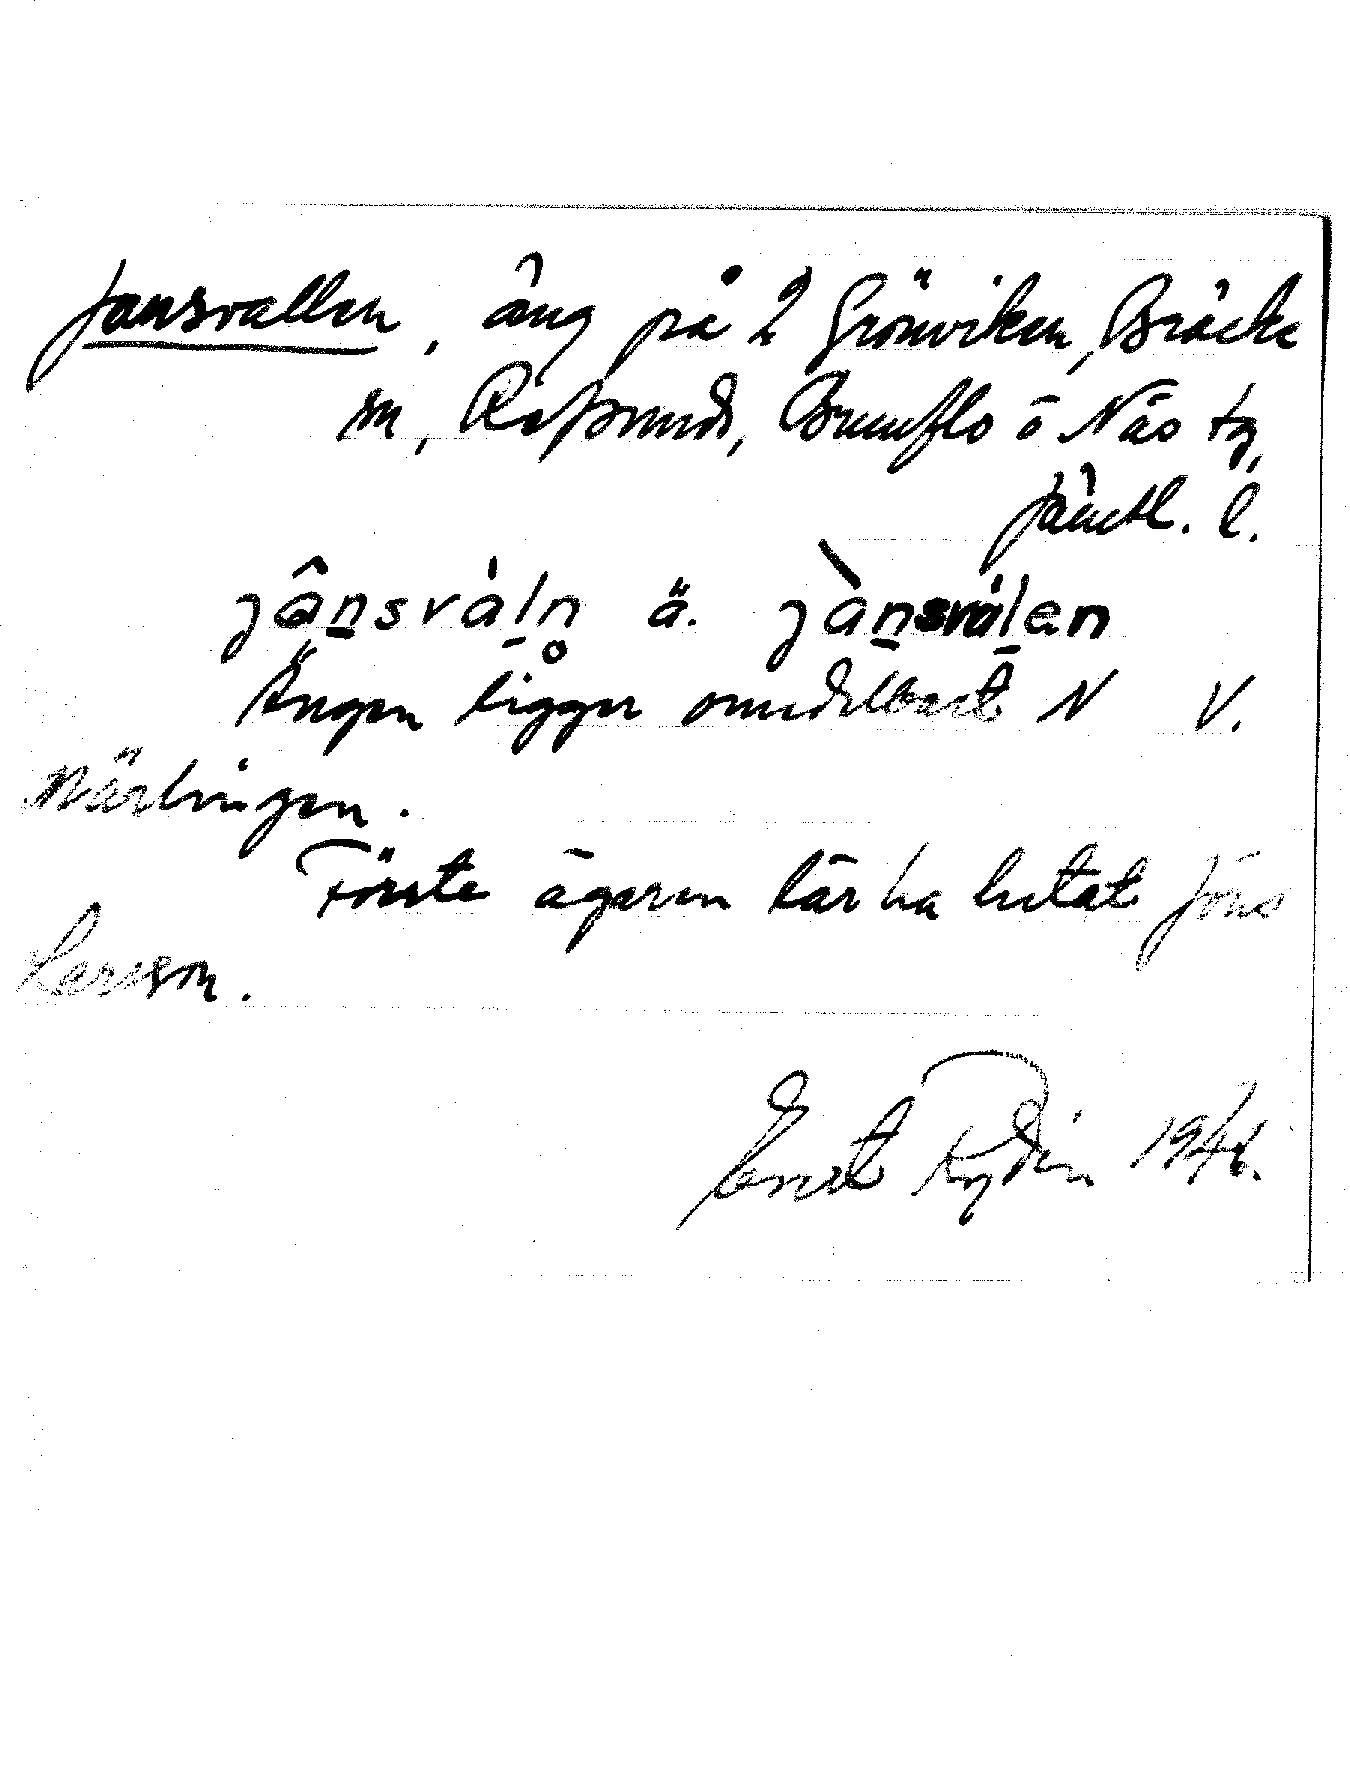 Jansvallen, äng på 2 Grönviken, Bräcke
sn, Refsunds, Brunflo o Näs tg,
Jämtl. l.
jânsvàln ä. jànsvàlen
Ängen ligger omedelbart N V.
Närlingen.
Förste ägaren lär ha hetat Jöns
Larsson.
Ernst Rydin 194